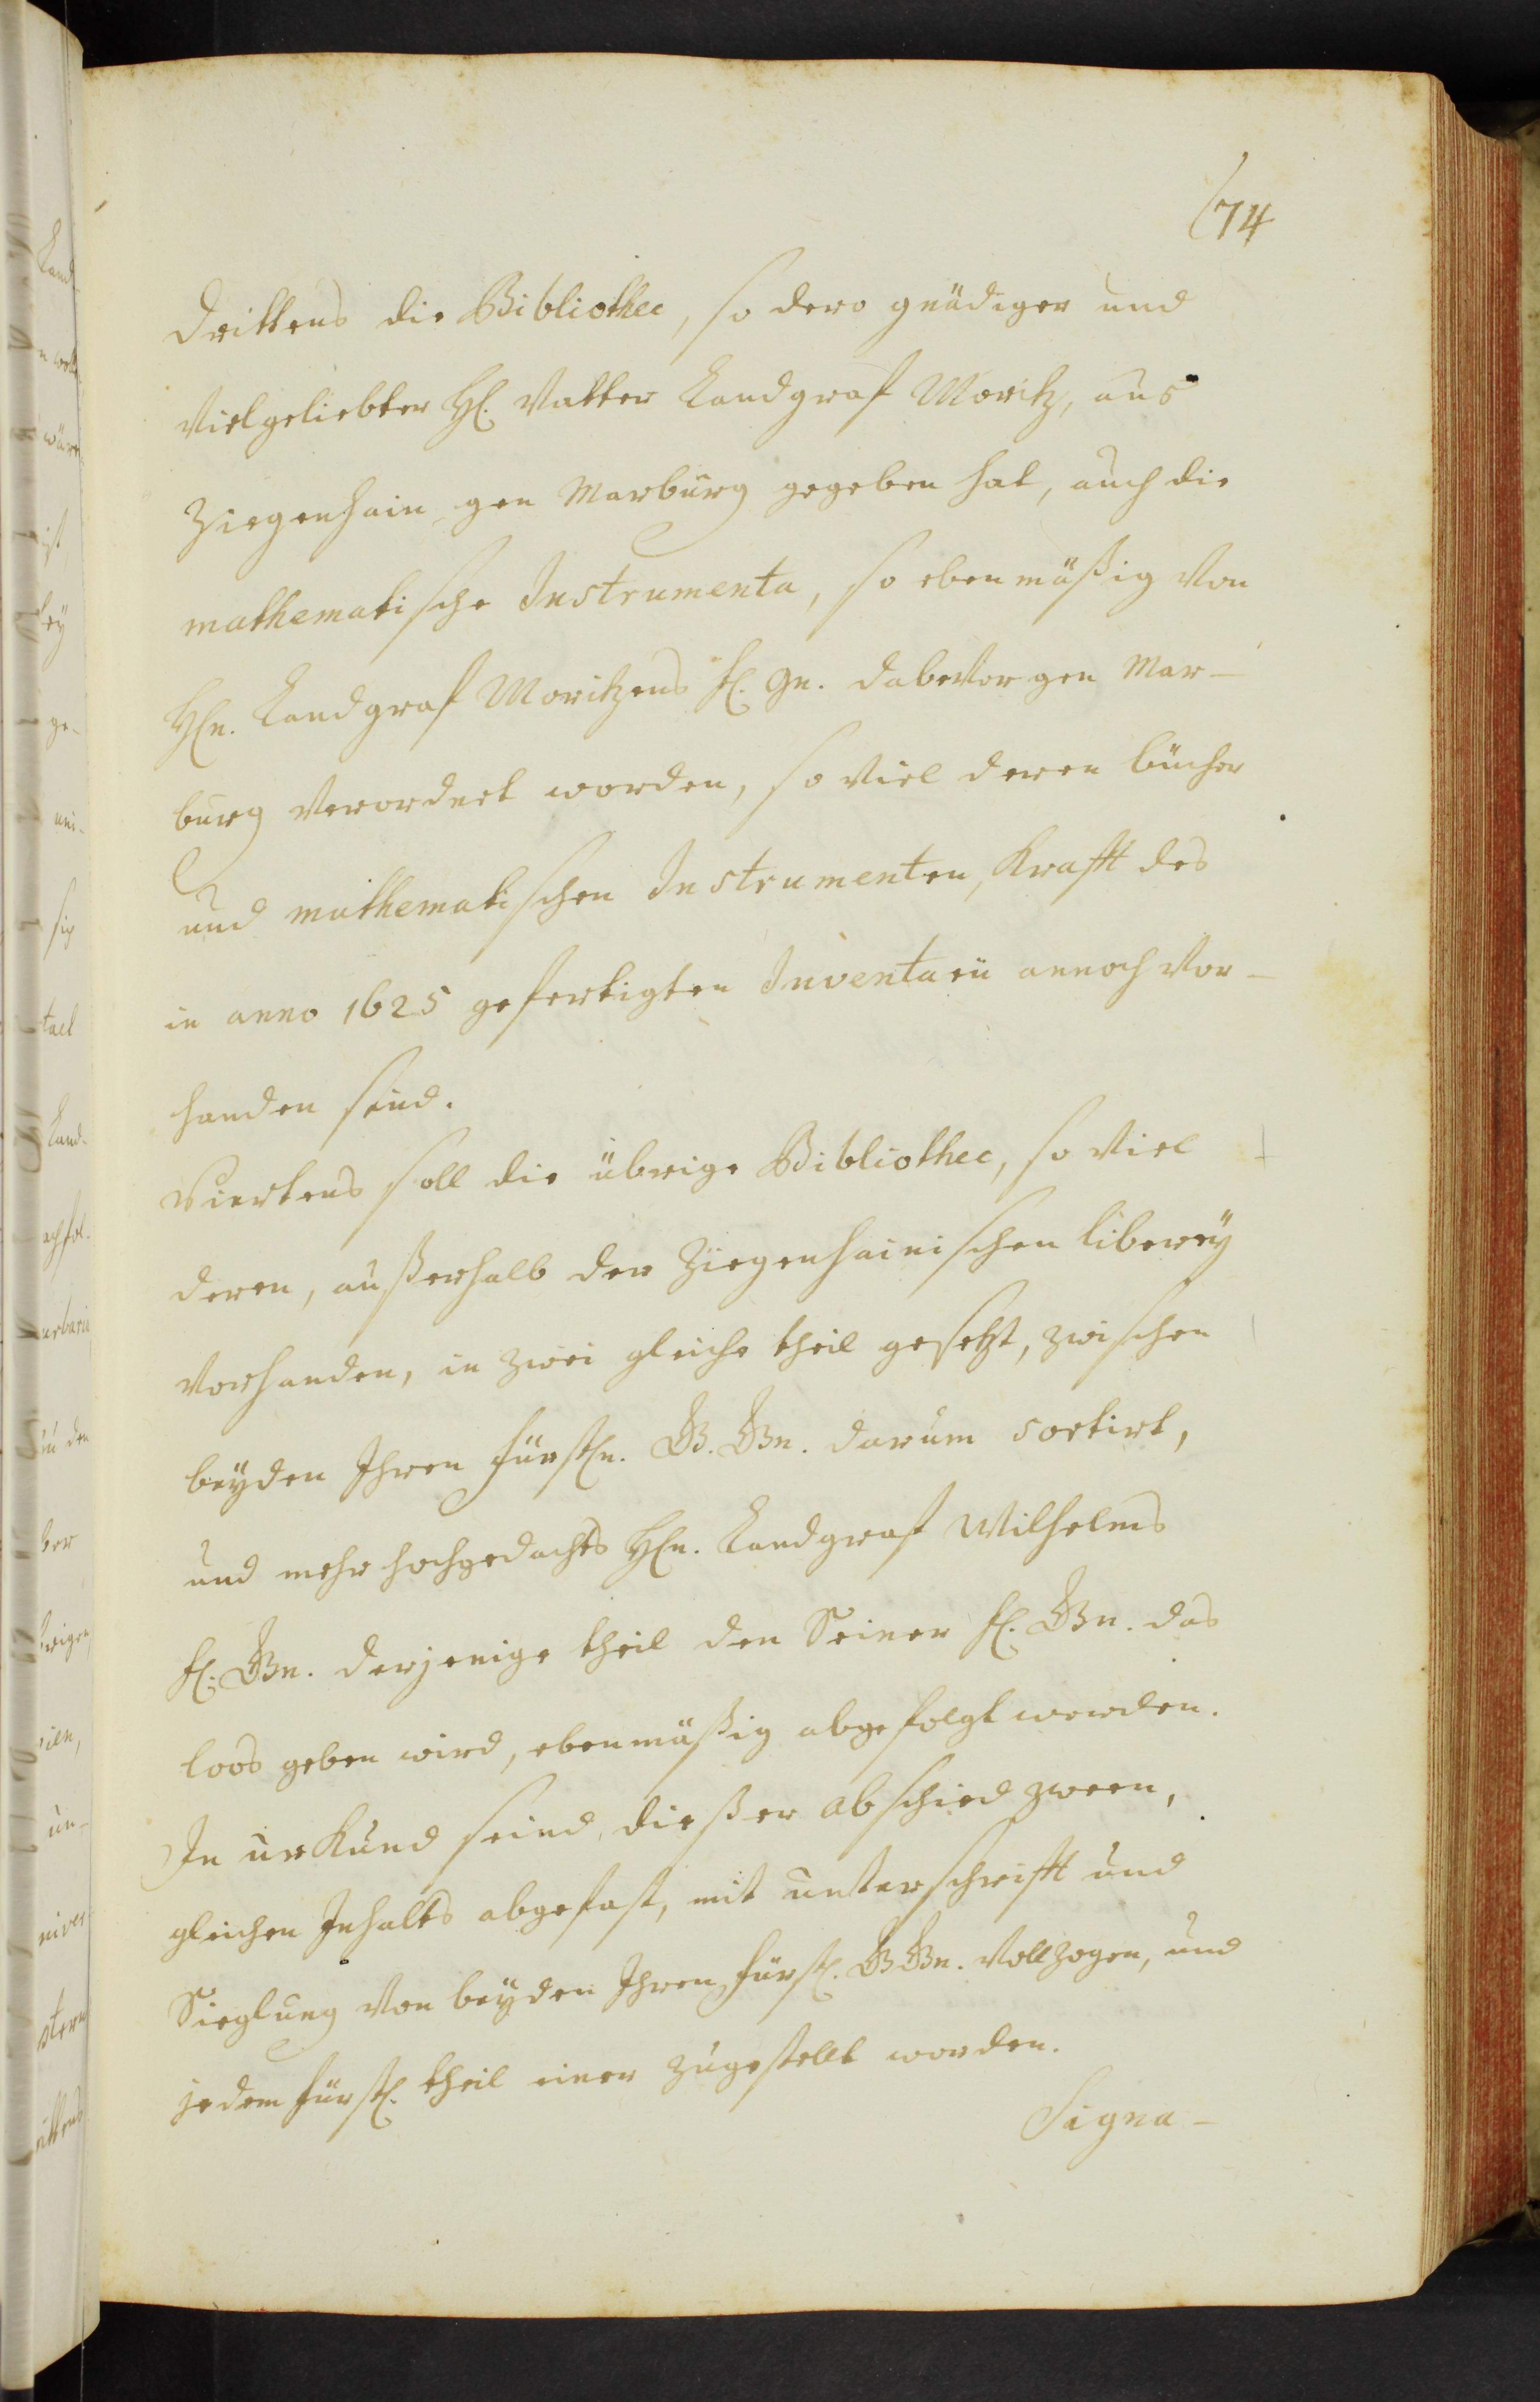 74
Drittens die Bibliothec, so dero gnädiger und
Vielgeliebter H. Vatter Landgraf Moritz, aus
Ziegenhain gen Marburg gegeben hat, auch die
mathematische Instrumenta, so ebenmäßig von
Hn. Landgraf Moritzens f. Gn. dabevor gen Mar-
burg verordnet worden, so viel deren bücher
und mathematischen Instrumenten, Krafft des
in anno 1625 gefertigten Inventarii annoch vor-
handen sind.
Viertens soll die übrige Bibliothec, so viel
deren, außerhalb der Ziegenhainischen liberey
vorhanden, in zwei gleiche theil gesetzt, zwischen
beyden Ihren fürstn. G. Gn. darum sortirt,
und mehr hochgedachts Hn. Landgraf Wilhelms
f. Gn. derjenige theil den Seiner f. Gn. das
loos geben wird, ebenmäßig abgefolgt werden.
In urkund seind dießer abschied zween,
gleichen Inhalts abgefast, mit unterschrifft und
Sieglung von beyden Ihren fürstl. G Gn. vollzogen, und
jedem fürstl. theil einer zugestellt worden.
Signa-